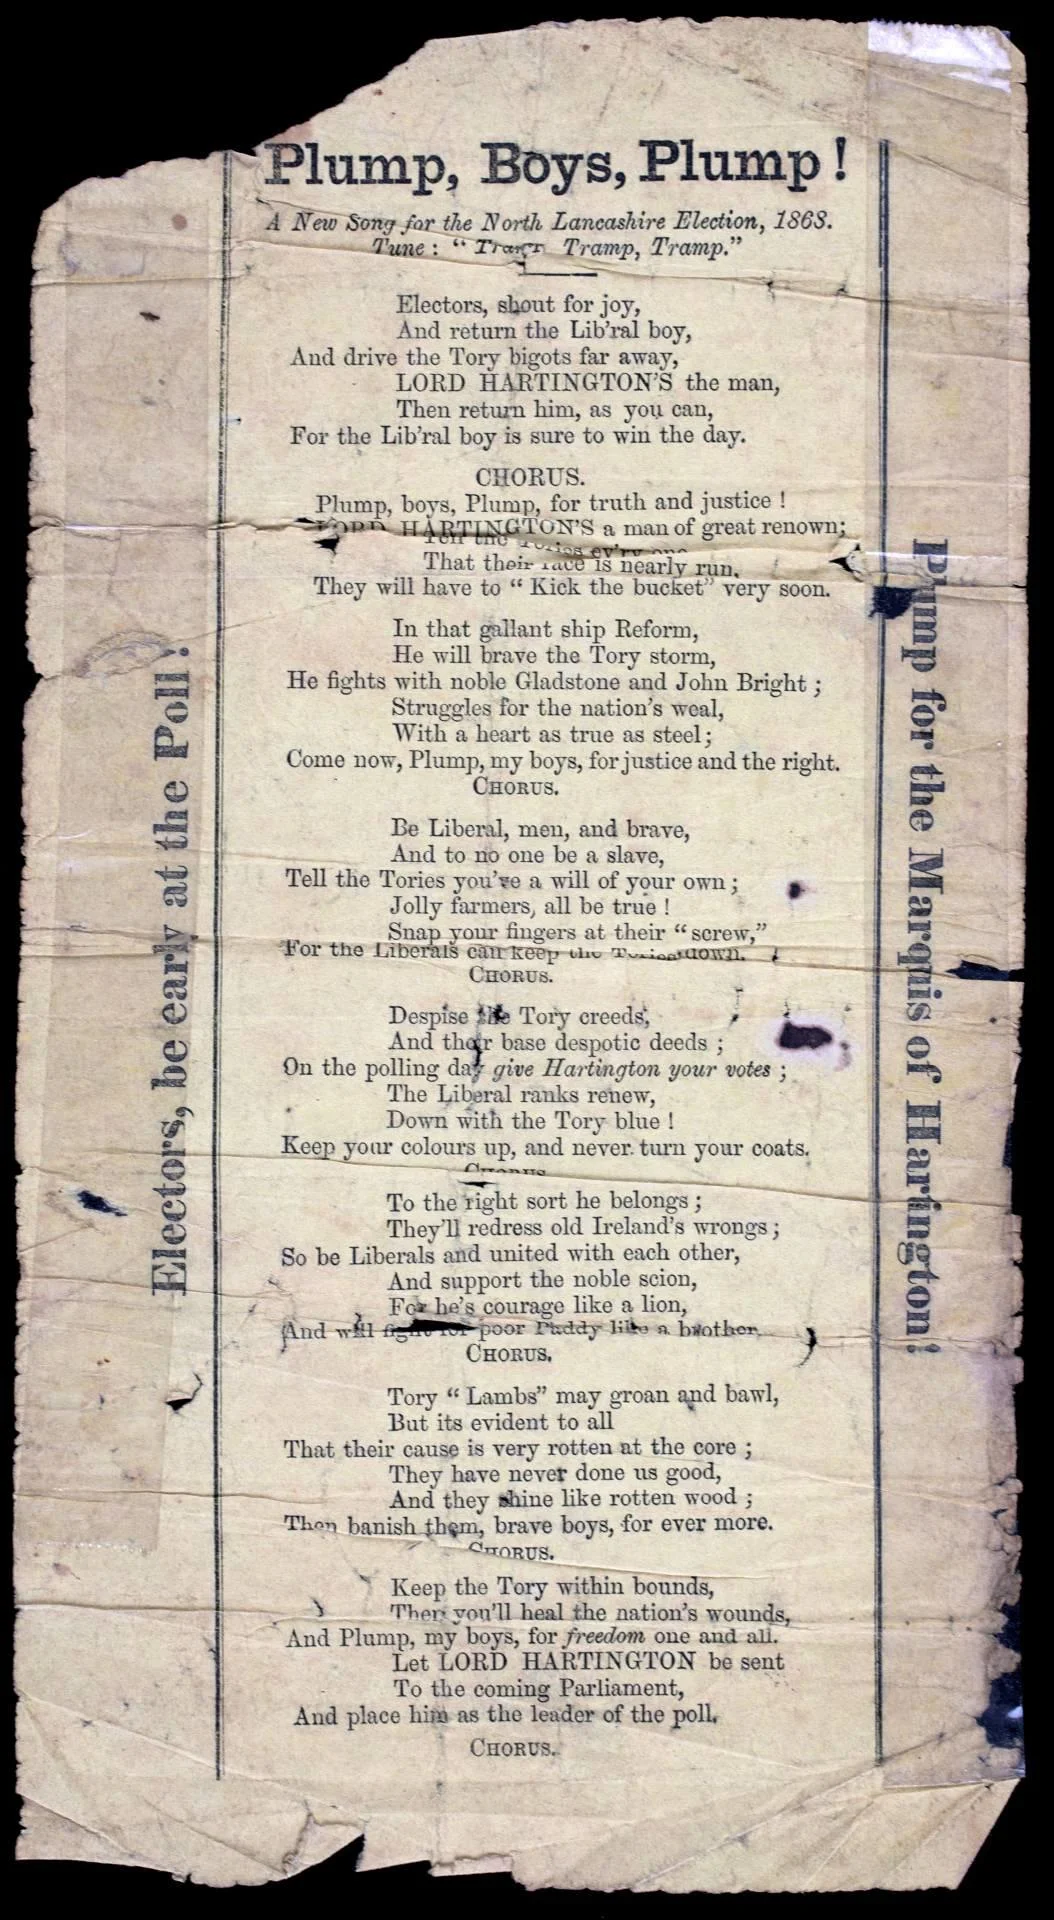 Plump, Boys, Plump!
A New Song for the North Lancashire Election, 1868.
Tune: "Tramp, Tramp, Tramp."
Electors, shout for joy,
And return the Lib'ral boy,
And drive the Tory bigots far away,
LORD HARTINGTON'S the man,
Then return him, as you can,
For the Lib'ral boy is sure to win the day.
CHORUS.
Plump, boys, Plump, for truth and justice!
LORD HARTINGTON'S a man of great renown;
Tell the Tories ev'ry one
That their race is nearly run,
They will have to "Kick the bucket" very soon.
In that gallant ship Reform,
He will brave the Tory storm,
He fights with noble Gladstone and John Bright;
Struggles for the nation's weal,
With a heart as true as steel;
Come now, Plump, my boys, for justice and the right.
CHORUS.
Be Liberal, men, and brave,
And to no one be a slave,
Tell the Tories you've a will of your own;
Jolly farmers, all be true!
Snap your fingers at their "screw,"
For the Liberals can keep the Tories down.
CHORUS.
Despise the Tory creeds,
And their base despotic deeds;
On the polling day give Hartington your votes;
The Liberal ranks renew,
Down with the Tory blue!
Keep your colours up, and never turn your coats.
CHORUS.
To the right sort he belongs;
They'll redress old Ireland's wrongs;
So be Liberals and united with each other,
And support the noble scion,
For he's courage like a lion,
And will fight for poor Paddy like a brother.
CHORUS.
Tory "Lambs" may groan and bawl,
But its evident to all
That their cause is very rotten at the core;
They have never done us good,
And they shine like rotten wood;
Then banish them, brave boys, for ever more.
CHORUS.
Keep the Tory within bounds,
Then you'll heal the nation's wounds,
And Plump, my boys, for freedom one and all.
Let LORD HARTINGTON be sent
To the coming Parliament,
And place him as the leader of the poll.
CHORUS.
Electors, be early at the Poll!
Plump for the Marquis of Hartington!